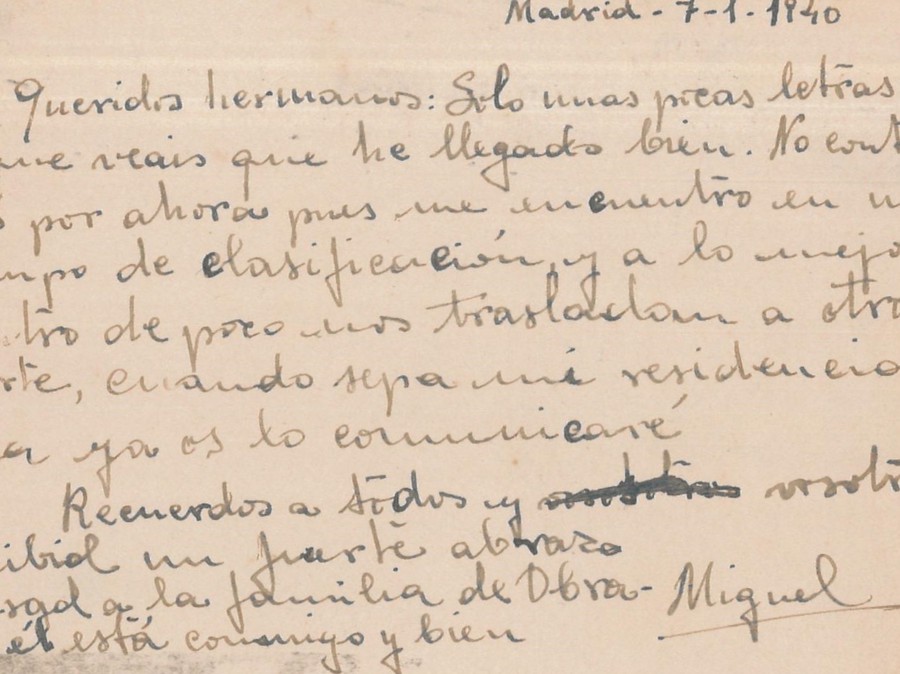 Madrid - 7-1-1940
Queridos hermanos: Solo unas pocas letras
que veais que he llegado bien. No cont
s por ahora pues me encuentro en u
mpo de clasificación, y a lo mejo
tro de poco nos trasladan a otro
rte, cuando sepa mi residencia
a ya os lo comunicaré
Recuerdos a todos y vosotr
ibid un fuerte abrazo
sad a la familia de Obra-
Miguel
él está conmigo y bien